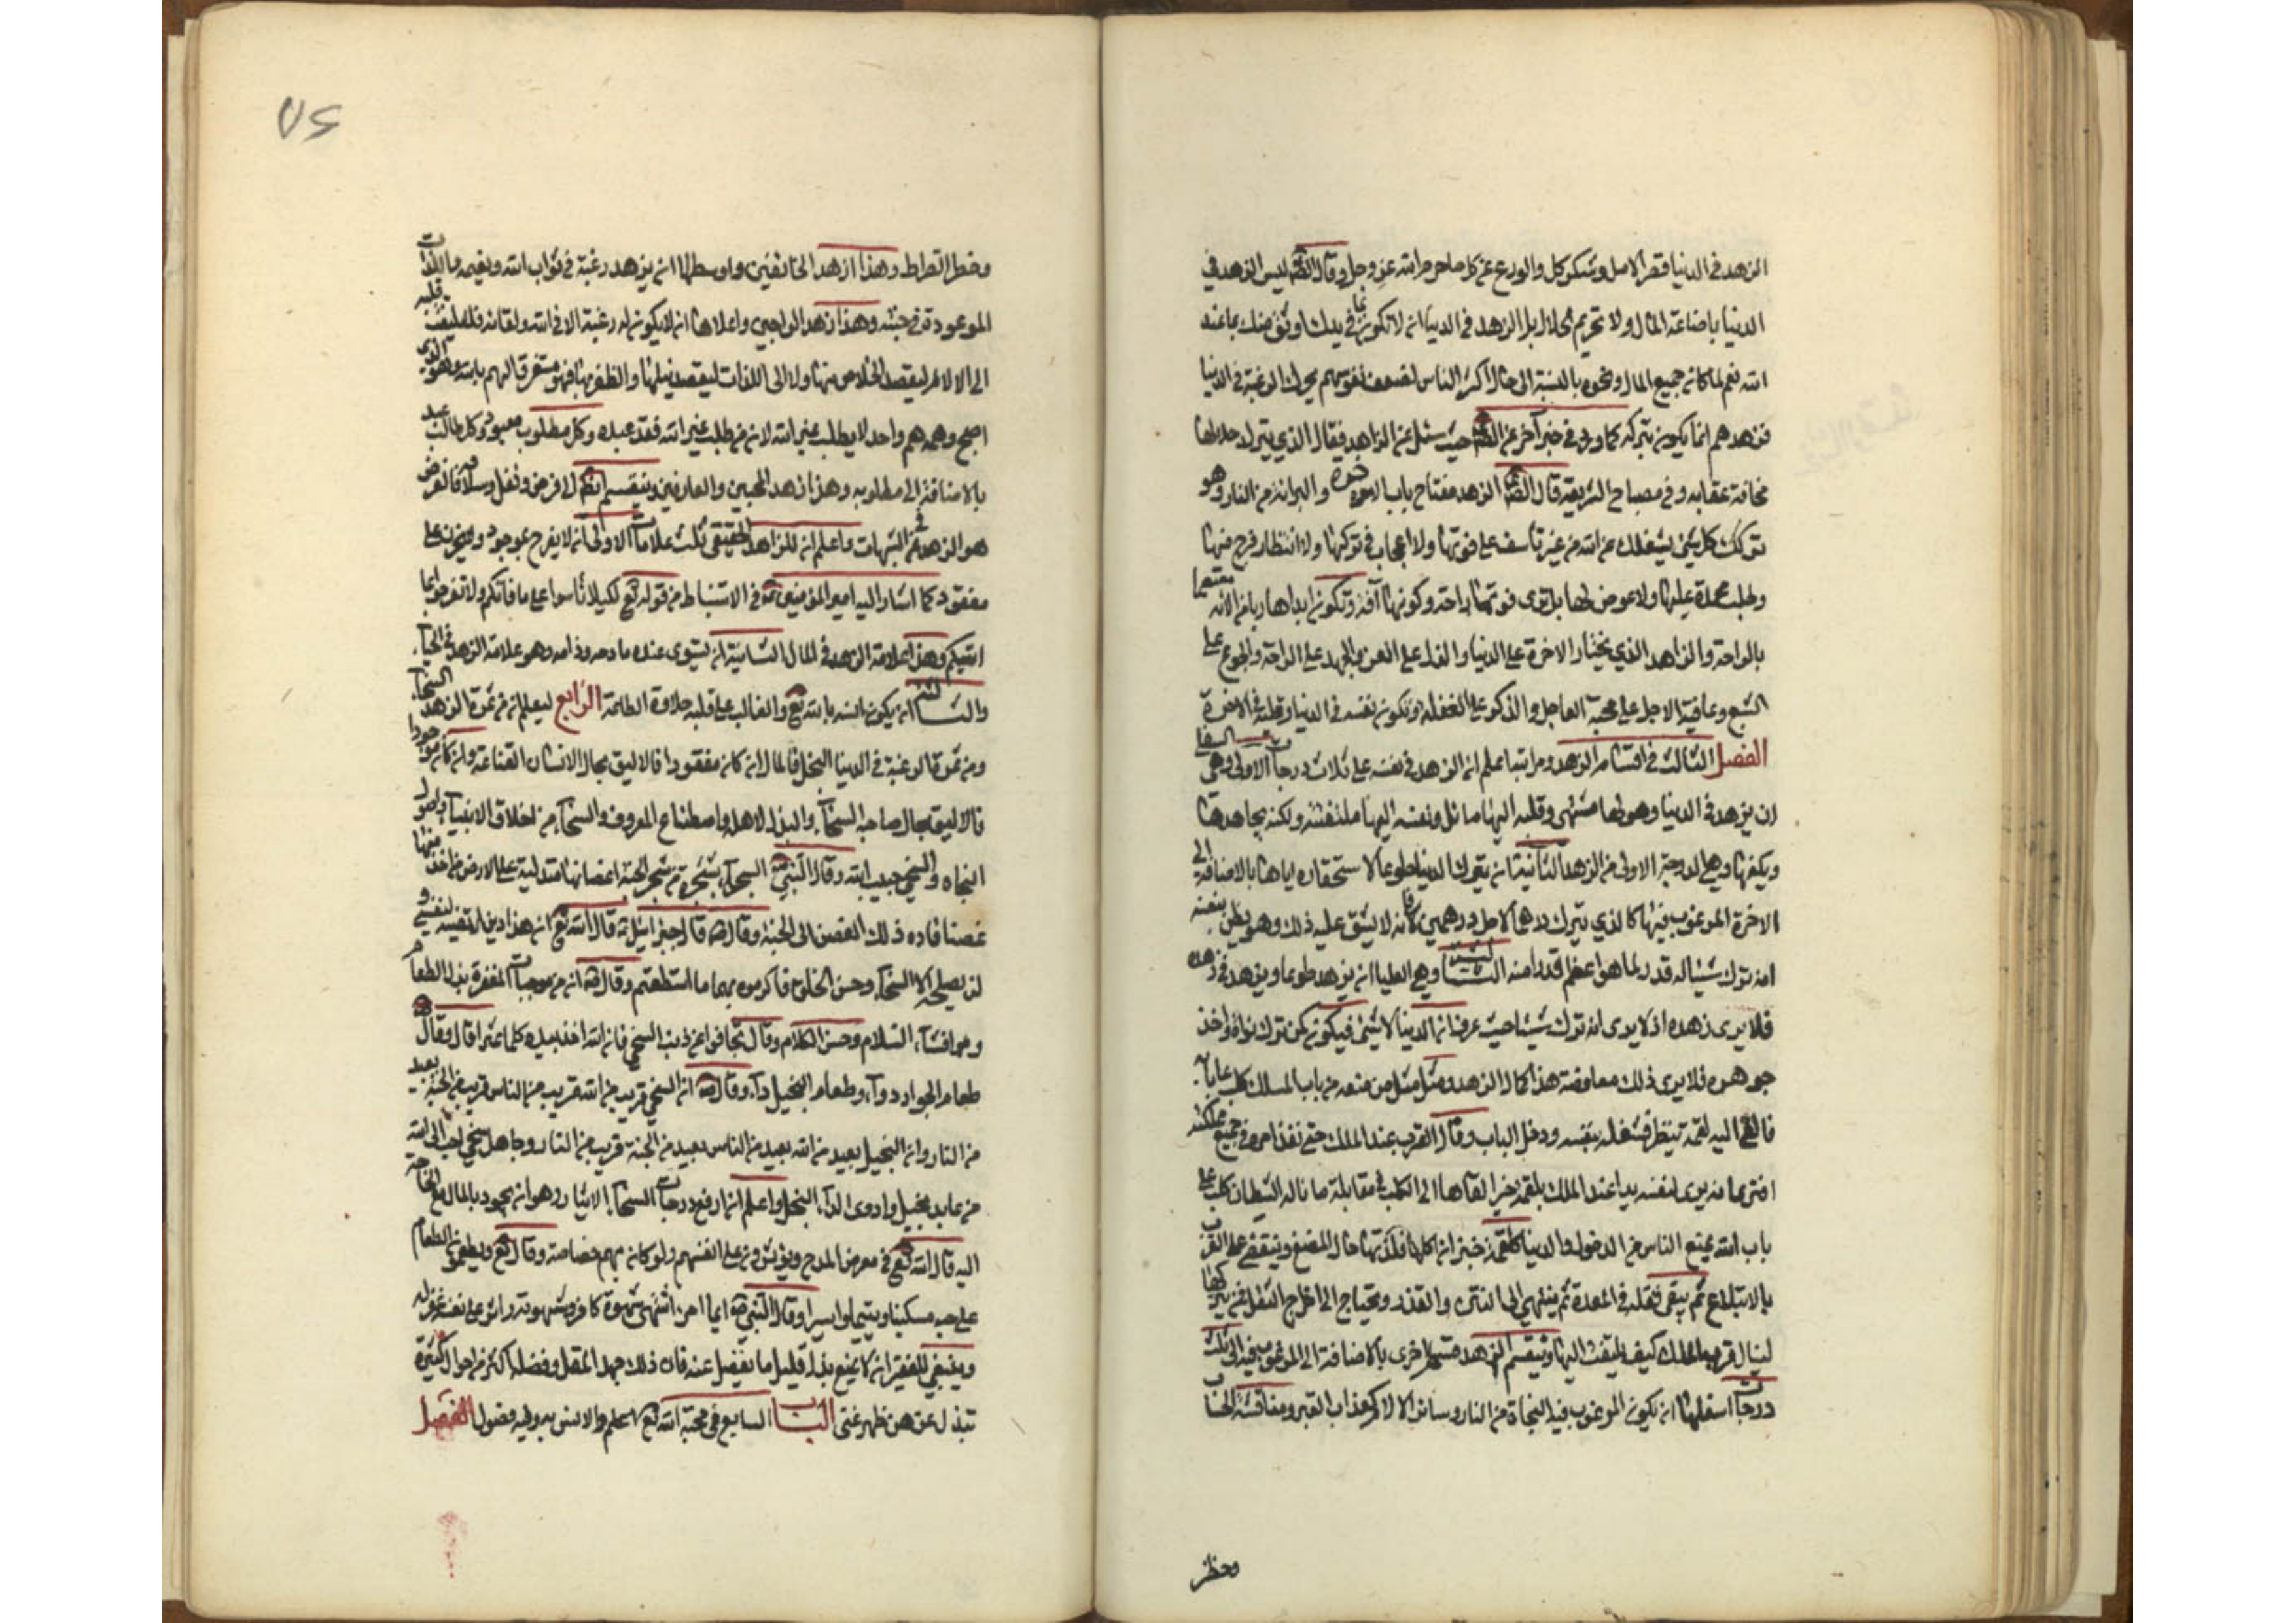 الزهد في الدنيا قصر الامل وشكر كل والورع عن كل ما حرم الله عز وجل وقال الصّ ليس الزهد في
الدنيا باضاعة المال ولا تحريم الحلال بل الزهد في الدنيا ان لا تكون بما في يدك اوثق منك بما عند
الله نعم لما كان جميع المال ونحوه بالنسبة الى حال اكثر الناس لضعف نفوسهم يحرك الرغبة في الدنيا
فزهدهم انما يكون بتركه كما ورد في خبر آخر عن الصّ حيث سئل عن الزاهد فقال الذي يترك حلالها
مخافة عقابه وفي مصباح الشريعة قال الصّ الزهد مفتاح باب الاخرة والبراءة من النار وهو
تركك كل شئ يشغلك عن الله من غير تأسف على فوتها ولا اعجاب في تركها ولا انتظار فرج منها
وطلب محمدة عليها ولا عوض لها بل ترى فوتها راحة وكونها آفة وتكون ابدا هاربا من الآفة معتصما
بالراحة والزاهد الذي يختار الاخرة على الدنيا والذل على العز والجهد على الراحة والجوع على
الشبع وعافية الاجل على محبة العاجل والذكر على الغفلة وتكون نفسه في الدنيا وقلبه في الاخرة
الفصل الثالث في اقسام الزهد ومراتبه اعلم ان الزهد في نفسه على ثلاث درجات الاولى وهي السفلى
ان يزهد في الدنيا وهو لها مشتهى وقلبه اليها مائل ونفسه اليها ملتفتة ولكنه يجاهدها
ويكفها وهي الدرجة الاولى من الزهد الثانية ان يترك الدنيا طوعا لاستحقاره اياها بالاضافة الى
الاخرة المرغوب فيها كالذي يترك درهما لاجل درهمين فانه لا يشق عليه ذلك وهو يظن بنفسه
انه ترك شيئا له قدر لما هو اعظم قدرا منه الثالثة وهي العليا ان يزهد طوعا ويزهد في زهده
فلا يرى زهده اذ لا يرى انه ترك شيئا حيث عرف ان الدنيا لا شئ فيكون كمن ترك نواة واخذ
جوهره فلا يرى ذلك معاوضة هذا كمال الزهد ومثل مثل من منعه من باب الملك كلب على بابه
فالقى اليه لقمة خبز فشغله بنفسه ودخل الباب ونال القرب عند الملك حتى نفذ امره في جميع مملكته
افترى انه يرى لنفسه يدا عند الملك بلقمة خبز القاها الى الكلب في مقابلة ما ناله الشيطان كلب على
باب الله يمنع الناس من الدخول والدنيا كلقمة خبز ان اكلها فلذتها حال المضغ وينقضي على القرب
بالابتلاع ثم يبقى ثقله في المعدة ثم ينتهي الى النتن والقذر ويحتاج الى اخراج الثفل فمن يتركها
لينال قرب الملك كيف يلتفت اليها وينقسم الزهد قسمة اخرى بالاضافة الى المرغوب فيه الى ثلث
درجات اسفلها ان يكون المرغوب فيه النجاة من النار وسائر الالام كعذاب القبر ومناقشة الحساب
وخطر
٧٤
وخطر الصراط وهذا زهد الخائفين واوسطها ان يزهد رغبة في ثواب الله ونعيمه واللذات
الموعودة في جنته وهذا زهد الراجين واعلاها ان لا يكون له رغبة الا في الله ولقائه فلا يلتفت قلبه
الى الالام ليقصد الخلاص منها ولا الى اللذات ليقصد نيلها والظفر بها فهو مستغرق الهم بالله وهو الذي
اصبح وهمه هم واحد لا يطلب غير الله لان من طلب غير الله فقد عبده وكل مطلوب معبود وكل طالب عبد
بالاضافة الى مطلوبه وهذا زهد المحبين والعارفين وينقسم ايضا الى فرض ونفل وسلامة فالفرض
هو الزهد في الشبهات واعلم ان للزاهد الحقيقي ثلث علامات الاولى ان لا يفرح بموجود ولا يحزن على
مفقود كما اشار اليه امير المؤمنين ع في الاستنباط من قوله تع لكيلا تأسوا على ما فاتكم ولا تفرحوا بما
اتيكم وهذا علامة الزهد في المال الثانية ان يستوي عنده مادحه وذامه وهو علامة الزهد في الجاه
والثالثة ان يكون انسه بالله تع والغالب على قلبه حلاوة الطاعة الرابع ليعلم ان من ثمرة الزهد السخاء
ومن ثمرة الرغبة في الدنيا البخل فالمال ان كان مفقودا فالاليق بحال الانسان القناعة وان كان موجودا
فالاليق بحال صاحبه السخاء والبذل لاهله واصطناع المعروف والسخاء من اخلاق الانبياء واصول
النجاة والسخي حبيب الله وقال النبي ص السخاء شجرة من شجر الجنة اغصانها متدلية على الارض فمن اخذ منها
غصنا قاده ذلك الغصن الى الجنة وقال ص قال جبرائيل ع قال الله تع ان هذا دين ارتضيته لنفسي و
لن يصلحه الا السخاء وحسن الخلق فاكرموه بهما ما استطعتم وقال ص ان من موجبات المغفرة بذل الطعام
وافشاء السلام وحسن الكلام وقال تجافوا عن ذنب السخي فان الله اخذ بيده كلما عثر اقال وقال ص
طعام الجواد دواء وطعام البخيل داء وقال ص ان السخي قريب من الله قريب من الناس قريب من الجنة بعيد
من النار وان البخيل بعيد من الله بعيد من الناس بعيد من الجنة قريب من النار وجاهل سخي احب الى الله
من عابد بخيل وادوى الداء البخل واعلم ان ارفع درجات السخاء الايثار وهو ان يجود بالمال مع الحاجة
اليه قال الله تع في معرض المدح ويؤثرون على انفسهم ولو كان بهم خصاصة وقال تع ويطعمون الطعام
على حبه مسكينا ويتيما واسيرا وقال النبي ص ايما امرئ اشتهى شهوة فرد شهوته واثر على نفسه غفر له
وينبغي للفقير ان لا يمنع بذل قليل ما يفضل عنه فان ذلك جهد المقل وفضله اكثر من اموال كثيرة
تبذل عن ظهر غنى الباب السابع في محبة الله تع والانس به وفيه فصول الفصل